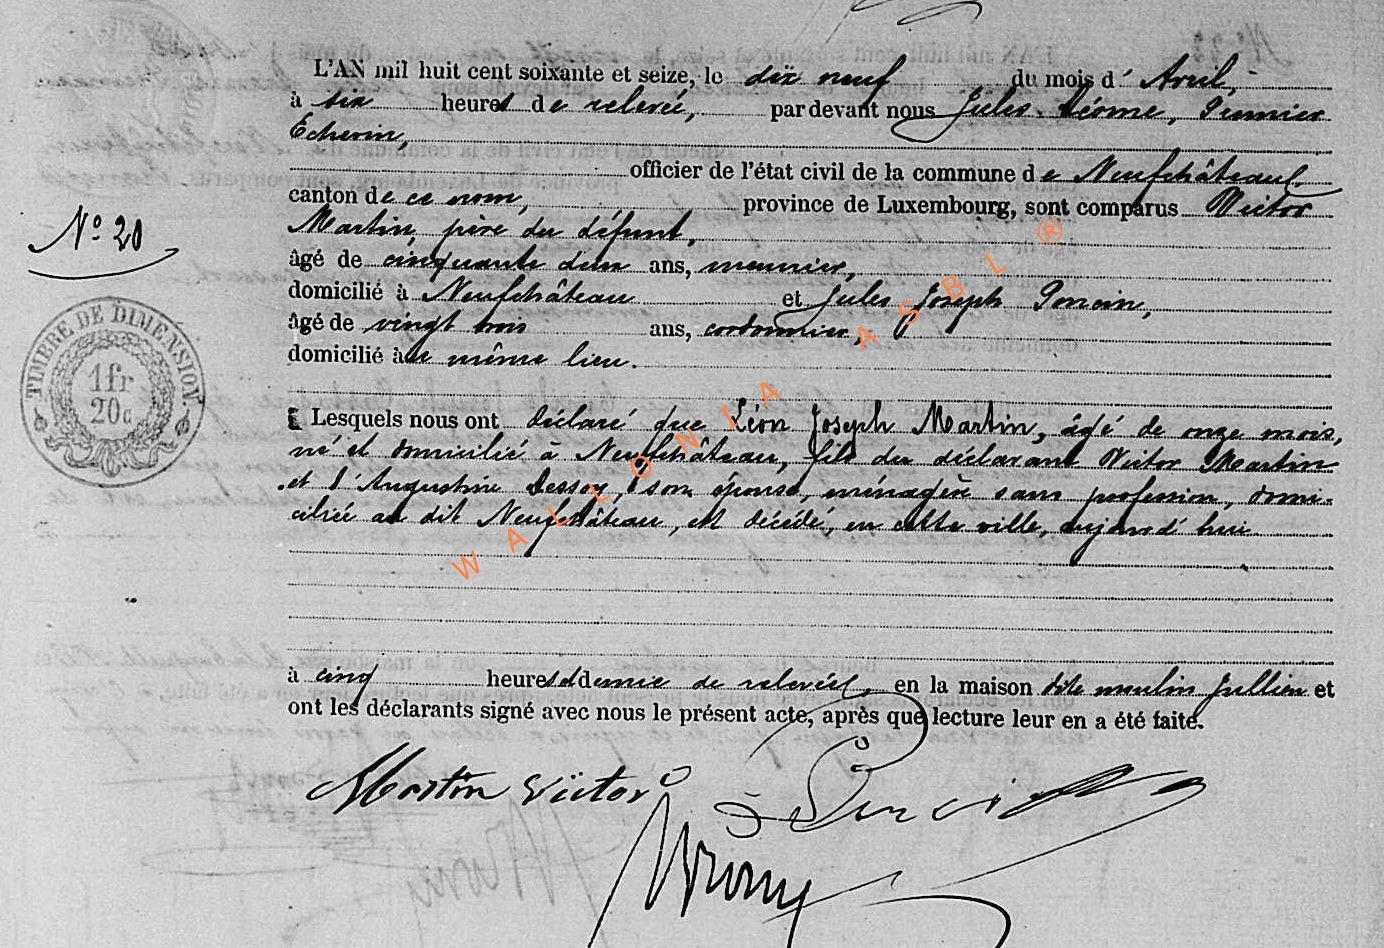 L'AN mil huit cent soixante et seize, le dix neuf du mois d' Avril,
à six heures de relevée, par devant nous Jules Léome, Premier
Echevin,
officier de l'état civil de la commune de Neufchâteau,
canton de ce nom, province de Luxembourg, sont comparus Victor
Martin, père du défunt,
âgé de cinquante deux ans, meunier,
domicilié à Neufchâteau et Jules Joseph Poncin,
âgé de vingt trois ans, cordonnier,
domicilié à le même lieu.
Lesquels nous ont déclaré que Léon Joseph Martin, âgé de onze mois,
né et domicilié à Neufchâteau, fils du déclarant Victor Martin
et d'Augustine Dessoy, son épouse, ménagère sans profession, domi-
ciliée au dit Neufchâteau, est décédé, en cette ville, aujourd'hui
à cinq heures et demie de relevée, en la maison dite moulin Jullien et
ont les déclarants signé avec nous le présent acte, après que lecture leur en a été faite.
N° 20
TIMBRE DE DIMENSION
1fr
20c
Martin Victor
J Poncin
WALLONIA ASBL ®